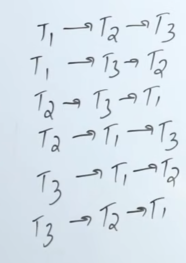 T₁ → T₂ → T₃
T₁ → T₃ → T₂
T₂ → T₃ → T₁
T₂ → T₁ → T₃
T₃ → T₁ → T₂
T₃ → T₂ → T₁